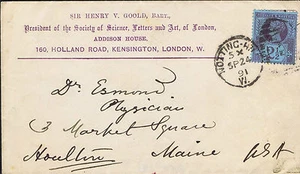 SIR HENRY V. GOOLD, BART.,
President of the Society of Science, Letters and Art, of London,
ADDISON HOUSE,
160, HOLLAND ROAD, KENSINGTON, LONDON, W.
NOTTING-HILL
SX
SP 24
91
W.
Dr. Esmond
Physician
3 Market Square
Houlton Maine USA